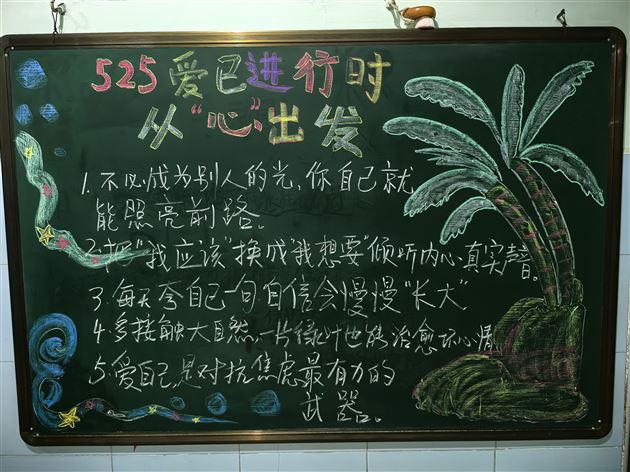 525爱已进行时
从“心”出发
1.不必成为别人的光,你自己就
能照亮前路。
2.把“我应该”换成“我想要”倾听内心真实声音。
3.每天夸自己一句自信会慢慢“长大”
4.多接触大自然,一片绿叶也能治愈坏心情
5.爱自己,是对抗焦虑最有力的
武器。